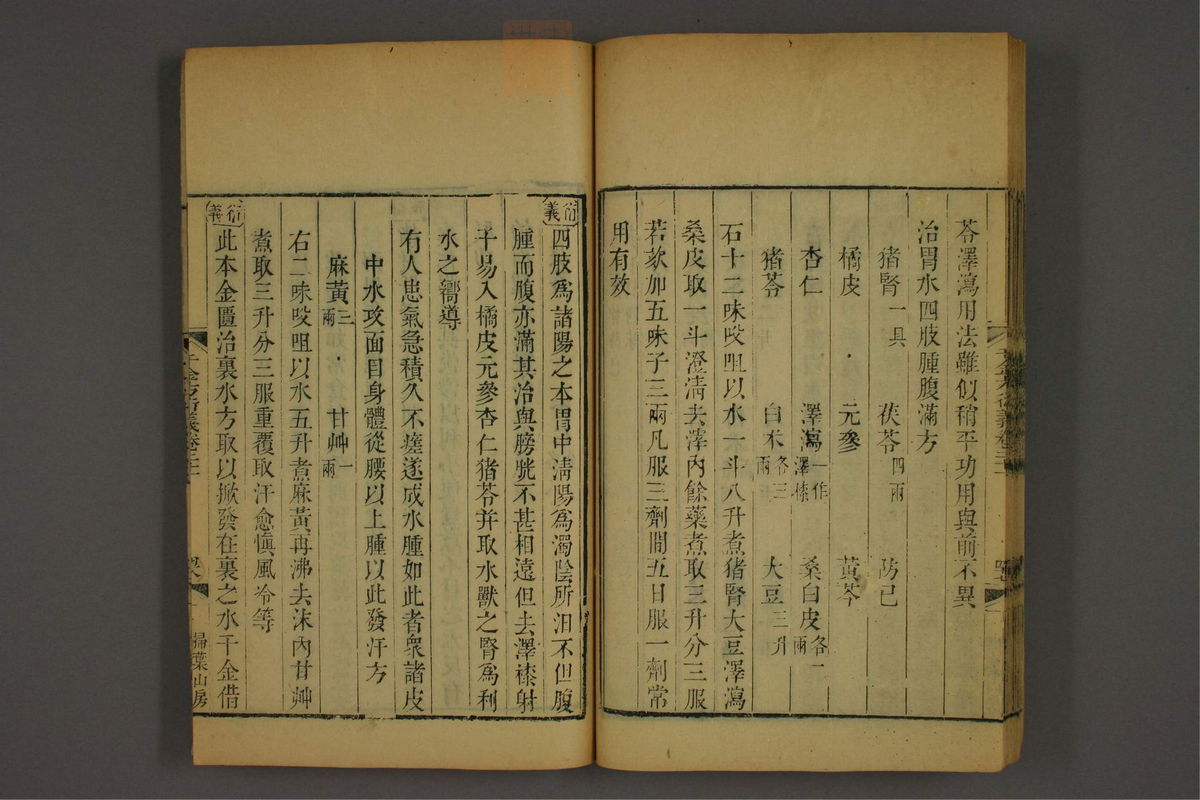 苓澤瀉用法雖似稍平功用與前不異
治胃水四肢腫腹滿方
猪腎一具 茯苓四兩 防己
橘皮 元參 黃芩
杏仁 澤瀉一作澤漆 桑白皮各一兩
猪苓 白朮各三兩 大豆三升
右十二味㕮咀以水一斗八升煮猪腎大豆澤瀉
桑皮取一斗澄清去滓內餘藥煮取三升分三服
若欬加五味子三兩凡服三劑間五日服一劑常
用有效
衍義四肢爲諸陽之本胃中清陽爲濁陰所汨不但腹
腫而腹亦滿其治與膀胱不甚相遠但去澤漆射
干易入橘皮元參杏仁猪苓并取水獸之腎爲利
水之嚮導
有人患氣急積久不瘥遂成水腫如此者衆諸皮
中水攻面目身體從腰以上腫以此發汗方
麻黃三兩 甘艸一兩
右二味㕮咀以水五升煮麻黃再沸去沫內甘艸
煮取三升分三服重覆取汗愈愼風冷等
衍義此本金匱治裏水方取以掀發在裏之水千金借
千金方衍義卷二十一
掃葉山房